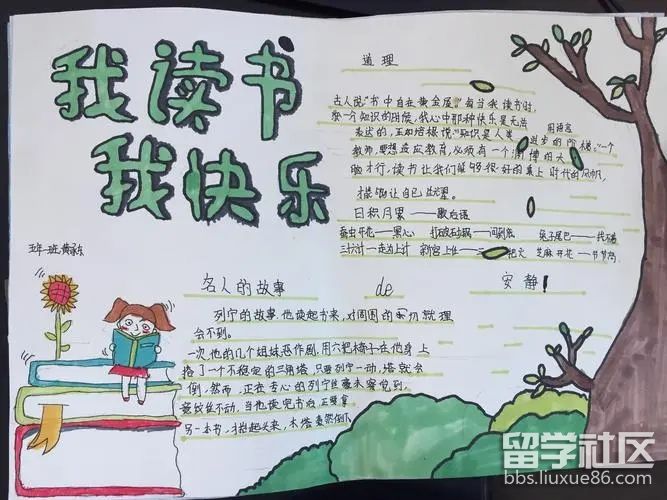 我读书
我快乐
道理
古人说"书中自有黄金屋"每当我读书时,
一个知识的时候,我心中那种快乐是无法
用语言
表达的,正如培根说"知识是人类进步的阶梯,"一个
教师,要想适应教育,必须有一个渊博的大
脑才行,读书让我们能够很好的乘上时代的风帆,
日积月累——歇后语
蚕虫开花——黑心 打破砂锅——问到底 兔子尾巴——
三十六计一走为上计 新官上任——三把火 芝麻开花——节节高
五年一班
名人的故事
de
安静!
列宁的故事 他读起书来,对周围的就理
会不到。
一次他的几个姐妹恶作剧,用六把椅子在他身上
搭了一个不稳定的三角塔,只要列宁一动,塔就会
倒,然而,正在专心的列宁丝毫未察觉到,
纹丝不动,当他读完书
另一本书,起头来,木塔轰然倒下
留学社区
bbs.liuxue86.com